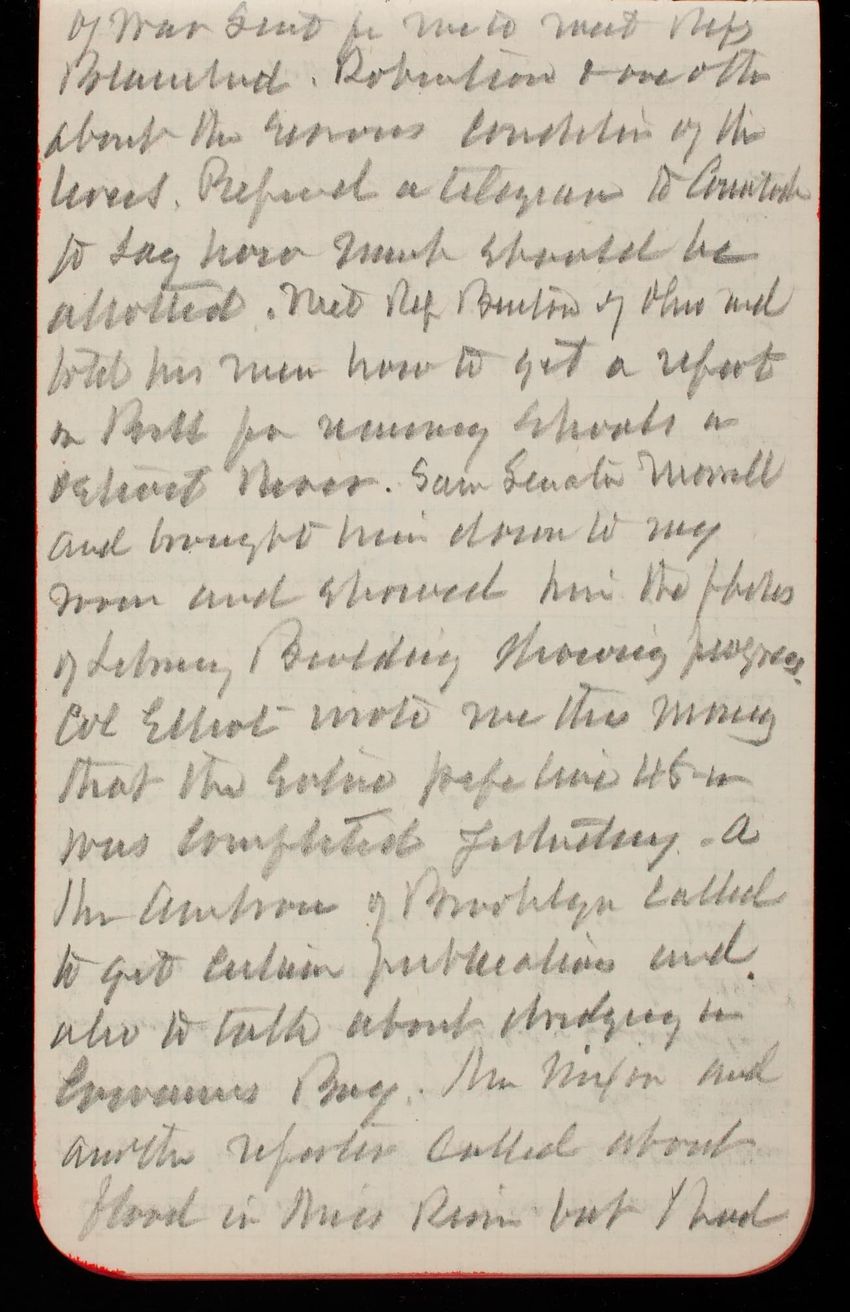 of War sent for me to meet Reps
Blanchard. Robertson & one other
about the serious condition of the
levees. Prepared a telegram to Comstock
to say how much should be
allotted. Met Rep Burton of Ohio and
told him how to get a report
on Bill for removing shoals in
Detroit River. Saw Senator Morrill
and brought him down to my
room and showed him the photos
of Library Building showing progress.
Col Elliot wrote me this morning
that the entire pipe line 48 in
was completed yesterday. A
Mr of Brooklyn called
to get certain publications and
also to talk about dredging in
Gowanus Bay. Mr Nixon and
another reporter called about
flood in Miss River but I had